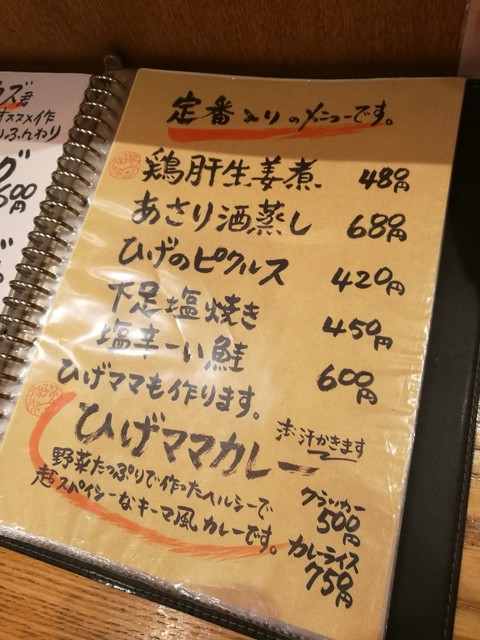 ウズ君
オススメ作
りふんわり
グ
600
定番よりのメニューです。
鶏肝生姜煮 480円
あさり酒蒸し 680円
ひげのピクルス 420円
下足塩焼き 450円
塩辛ーい鮭 600円
ひげママも作ります。
ひげママカレー 注:汗かきます
野菜たっぷりで作ったヘルシーで
超スパイシーなキーマ風カレーです。
クラッカー
500円
カレーライス
750円